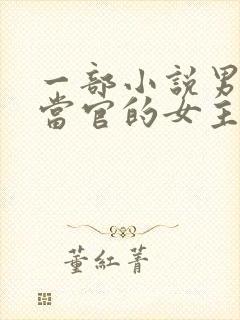 一部小說男
當官的女主
董紅菁